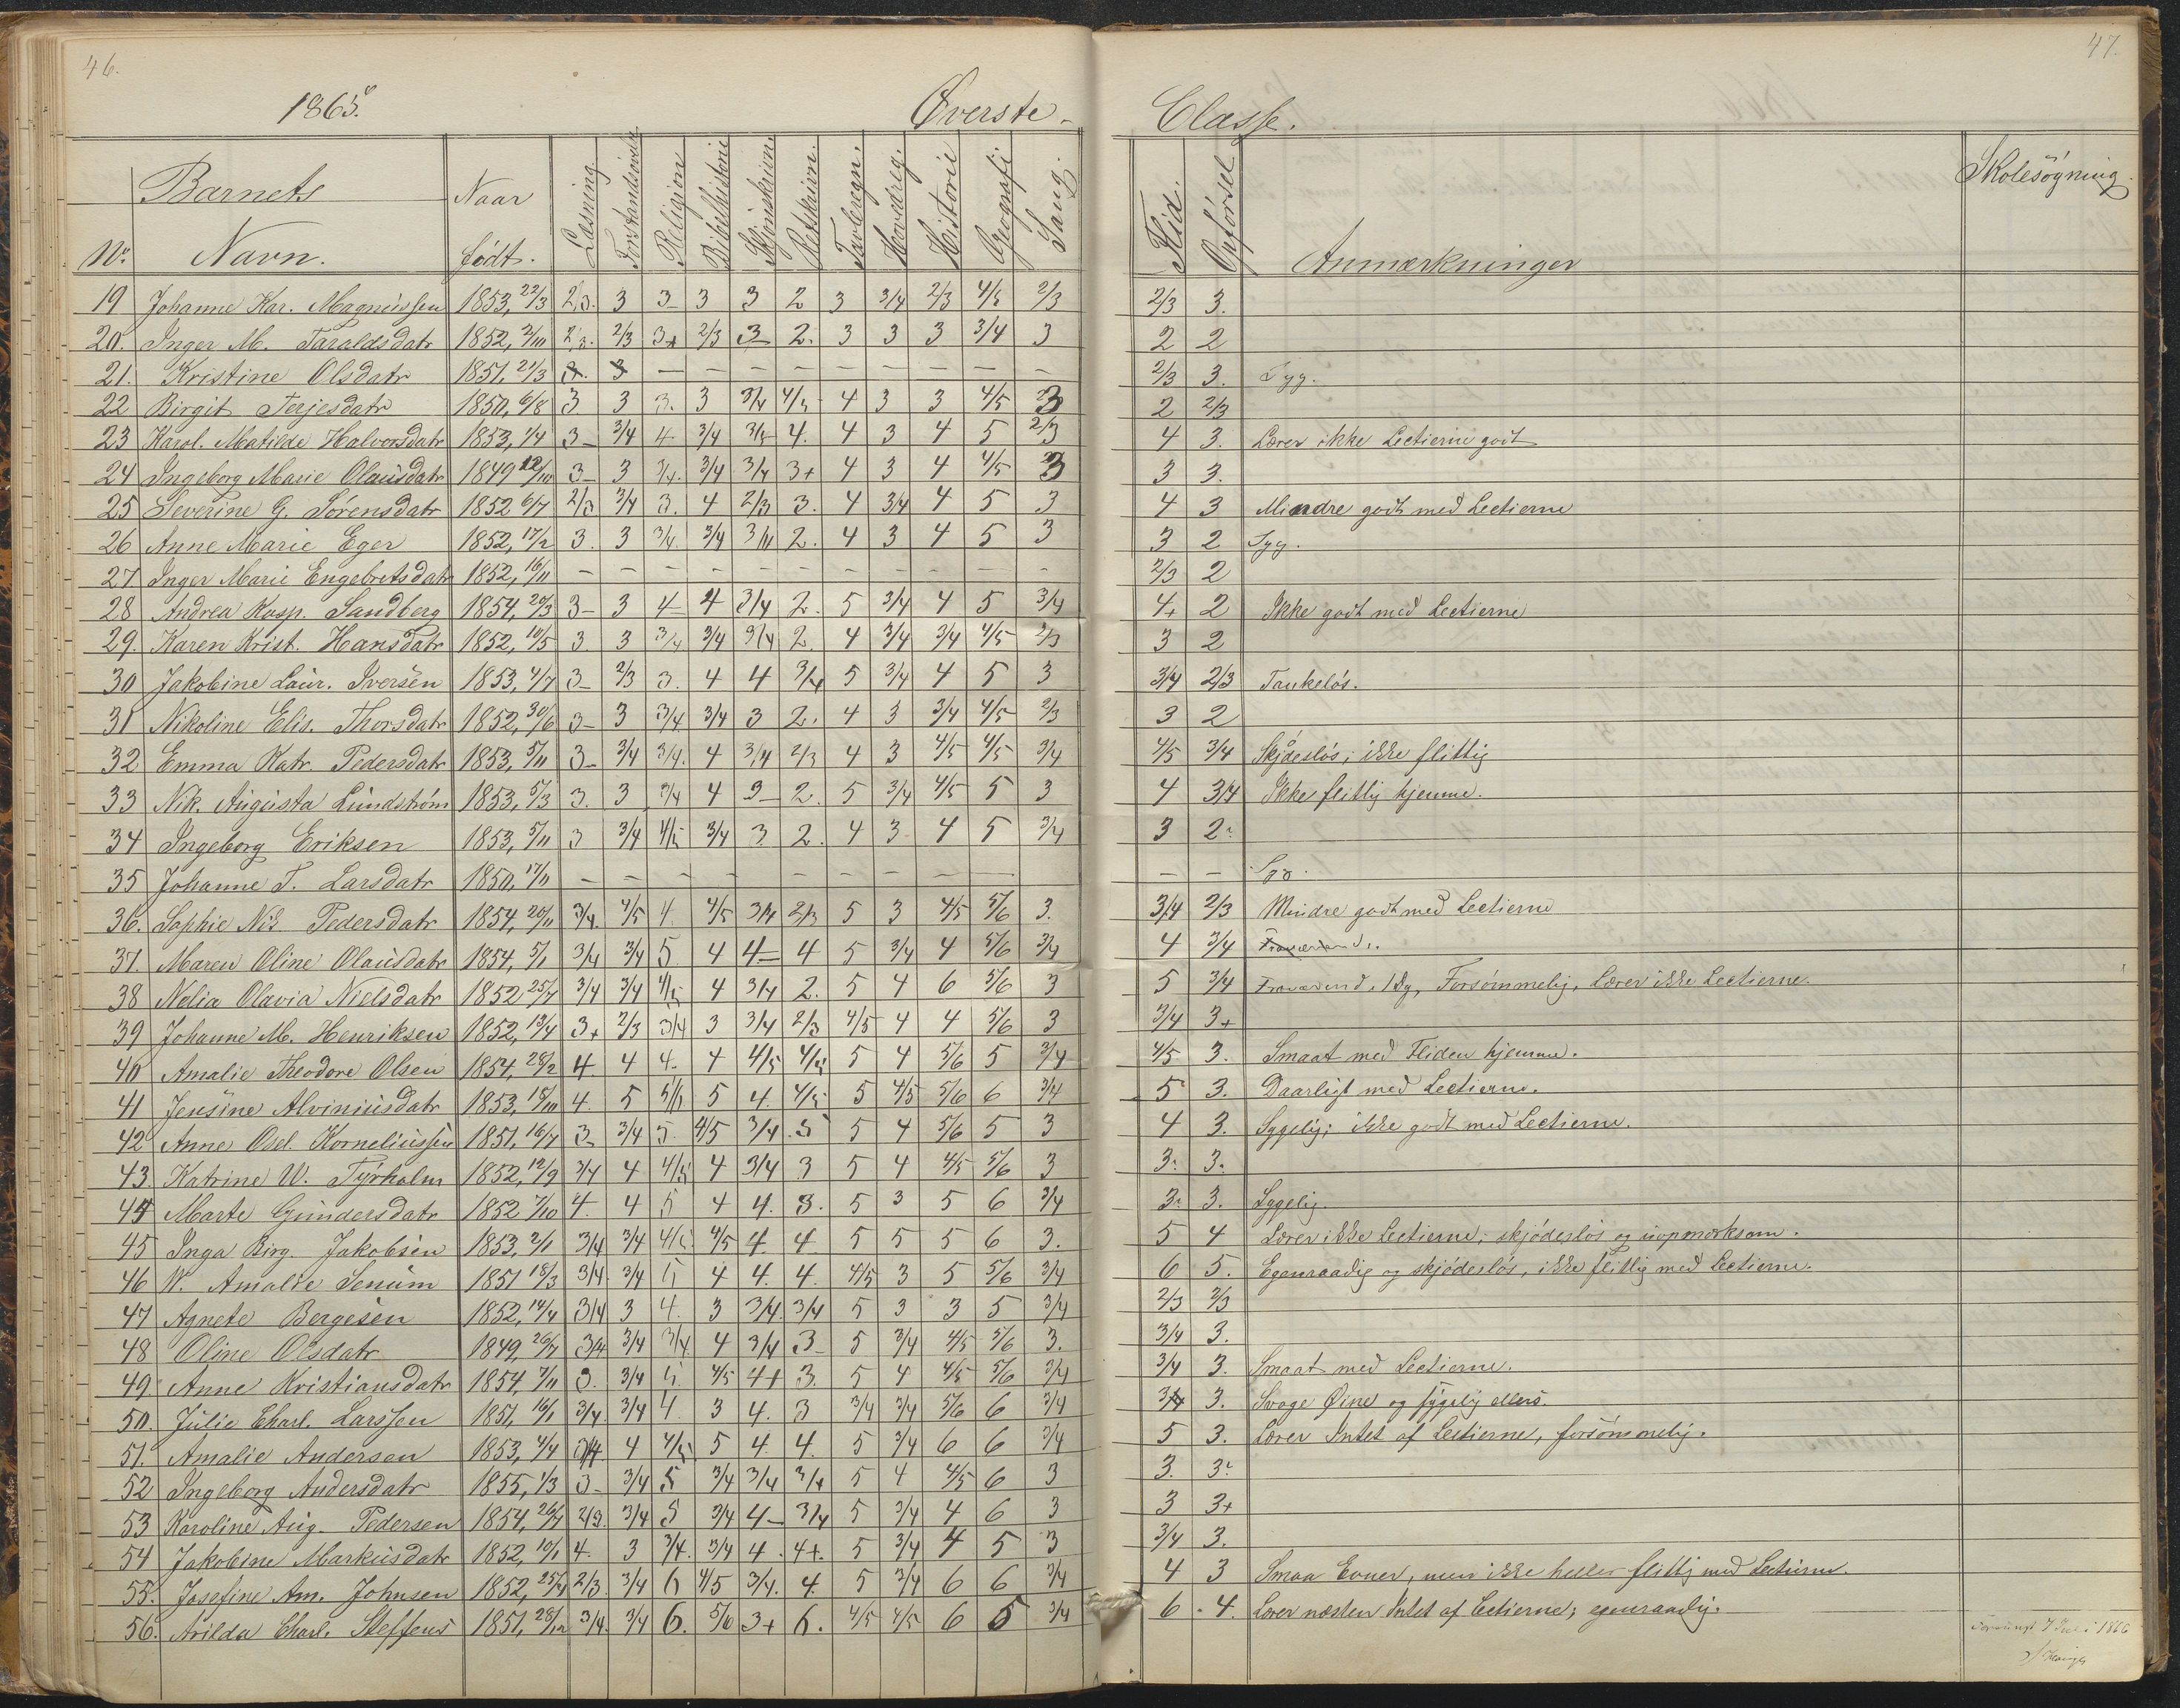 46.
47.
1865.
Øverste-
Classe.
Barnets
Naar
Læsning
Religion
Bibelhistorie
Skjønskrivn.
Retskrivn.
Tavleregn.
Hovdreg.
Historie
Geografi
Sang.
Flid.
Opførsel
Skolesøgning.
No. Navn. født. Anmærkninger
19 Johanne Kar. Magnussen 1853, 22/3 2/3. 3 3 3 3 2 3 3/4 2/3 4/5 2/3 2/3 3.
20. Inger M. Taraldsdatr 1852, 2/10 2/3. 2/3 3+ 2/3 3- 2. 3 3 3 3/4 3 2 2
21. Kristine Olsdatr 1851, 21/3 — — — — — — — — — 2/3 3. Syg.
22 Birgit Terjesdatr 1850, 6/8 3 3 3. 3 3/4 4/5 4 3 3 4/5 3 2 2/3
23 Karol. Matilde Halvorsdatr 1853, 1/4 3- 3/4 4 3/4 3/4 4. 4 3 4 5 2/3 4 3. Lærer ikke Lectierne godt
24 Ingeborg Marie Olausdatr 1849 12/10 3- 3 3/4. 3/4 3/4 3+ 4 3 4 4/5 3 3 3.
25 Severine G. Sørensdatr 1852 6/7 2/3 3/4 3. 4 2/3 3. 4 3/4 4 5 3 4 3 Mindre godt med Lectierne
26 Anne Marie Eger 1852, 17/2 3. 3 3/4. 3/4 3/4 2. 4 3 4 5 3 3 2 Syg.
27 Inger Marie Engebretsdatr 1852, 16/11 — — — — — — — — — — — 2/3 2
28 Andrea Kasp. Sandberg 1854, 20/3 3- 3 4 4 3/4 2. 5 3/4 4 5 3/4 4+ 2 Ikke godt med Lectierne
29. Karen Krist. Hansdatr 1852, 10/5 3. 3 3/4 3/4 3/4 2. 4 3/4 3/4 4/5 2/3 3 2
30 Jakobine Laur. Iversen 1853, 4/7 3- 2/3 3. 4 4 3/4 5 3/4 4 5 3 3/4 2/3 Tankeløs.
31 Nikoline Elis. Thorsdatr 1852, 30/6 3- 3 3/4 3/4 3 2. 4 3 3/4 4/5 2/3 3 2
32 Emma Katr. Pedersdatr 1853, 5/11 3- 3/4 3/4. 4 3/4 2/3 4 3 4/5 4/5 3/4 4/5 3/4 Skjødesløs; ikke flittig
33 Nik. Augusta Lundstrøm 1853, 5/3 3. 3 3/4 4 3- 2. 5 3/4 4/5 5 3 4 3/4 Ikke flittig hjemme.
34 Ingeborg Eriksen 1853, 5/11 3 3/4 4/5 3/4 3 2. 4 3 4 5 3/4 3 2.
35 Johanne T. Larsdatr 1850, 17/11 — — — — — — — — — — — — Syg.
36. Sophie Nik. Pedersdatr 1854, 20/11 3/4. 4/5 4. 4/5 3/4 2/3 5 3 4/5 5/6 3. 3/4 2/3 Mindre godt med Lectierne
37. Maren Oline Olausdatr 1854, 5/1 3/4 3/4 5. 4 4- 4 5 3/4 4 5/6 3/4 4 3/4 Fraværend.
38 Nelia Olavia Nielsdatr 1852 25/7 3/4 3/4 4/5 4 3/4 2. 5 4 6 5/6 3 5 3/4 Fraværend, Syg, Forsømmelig, lærer ikke Lectierne.
39 Johanne M. Henriksen 1852, 13/4 3+ 2/3 3/4 3 3/4 2/3 4/5 4 4 5/6 3 3/4 3+
40 Amalie Theodore Olsen 1854, 28/2 4. 4 4. 4 4/5 4/5 5 4 5/6 5 3/4 4/5 3. Smaat med Fliden hjemme.
41 Jensine Alviniusdatr 1853, 18/10 4. 5 5/6 5 4. 4/5 5 4/5 5/6 6 3/4 5 3. Daarligt med Lectierne.
42 Anne Osel. Korneliussen 1851, 16/7 3- 3/4 5. 4/5 3/4 .5 5 4 5/6 5 3 4 3. Sygelig; ikke godt med Lectierne.
43 Katrine W. Tyrholm 1852, 12/9 3/4 4 4/5 4 3/4 3 5 4 4/5 5/6 3 3. 3.
44 Marte Gundersdatr 1852 7/10 4. 4 5 4 4. 3. 5 3 5 6 3/4 3. 3. Sygelig.
45 Inga Birg. Jakobsen 1853, 2/1 3/4 3/4 4/5 4/5 4. 4 5 5 5 6 3. 5 4 Lærer ikke Lectierne; skjødesløs og uopmærksom.
46 N. Amalie Senum 1851 18/3 3/4. 3/4 5 4 4. 4. 4/5 3 5 5/6 3/4 6 5. Egenraadig og skjødesløs, ikke flittig med Lectierne.
47 Agnete Bergesen 1852, 14/4 3/4 3 4. 3 3/4. 3/4 5 3 3 5 3/4 2/3 2/3
48 Oline Olsdatr 1849, 26/7 3/4 3/4 3/4 4 3/4 3- 5 3/4 4/5 5/6 3. 3/4 3.
49 Anne Kristiansdatr 1854, 7/11 3. 3/4 5. 4/5 4+ 3. 5 4 4/5 5/6 3/4 3/4 3. Smaat med Lectierne.
50. Julie Charl. Larssen 1851, 16/1 3/4. 3/4 4 3 4. 3 3/4 3/4 5/6 6 3/4 3/4 3. Svage Øine og sygelig ellers.
51. Amalie Andersen 1853, 4/4 3/4. 4 4/5 5 4. 4. 5 3/4 6 6 3/4 5 3. Lærer Intet af Lectierne, forsømmelig.
52 Ingeborg Andersdatr 1855, 1/3 3- 3/4 5 3/4 3/4 3/4 5 4 4/5 6 3 3. 3.
53 Karoline Aug. Pedersen 1854, 26/7 2/3. 3/4 5 3/4 4- 3/4 5 3/4 4 6 3 3 3+
54 Jakobine Markusdatr 1852, 10/1 4. 3 3/4. 3/4 4. 4+. 5 3/4 4 5 3 3/4 3.
55. Josefine Am. Johnsen 1852, 25/4 2/3. 3/4 6 4/5 3/4. 4. 5 3/4 6 6 3/4 4 3 Smaa Evner, men ikke heller flittig med Lectierne.
56. Arilda Charl. Steffens 1851, 28/12 3/4. 3/4 6. 5/6 3+ 6. 4/5 4/5 6 5 3/4 6 4. Lærer næsten Intet af Lectierne; egenraadig.
7 Juli 1866